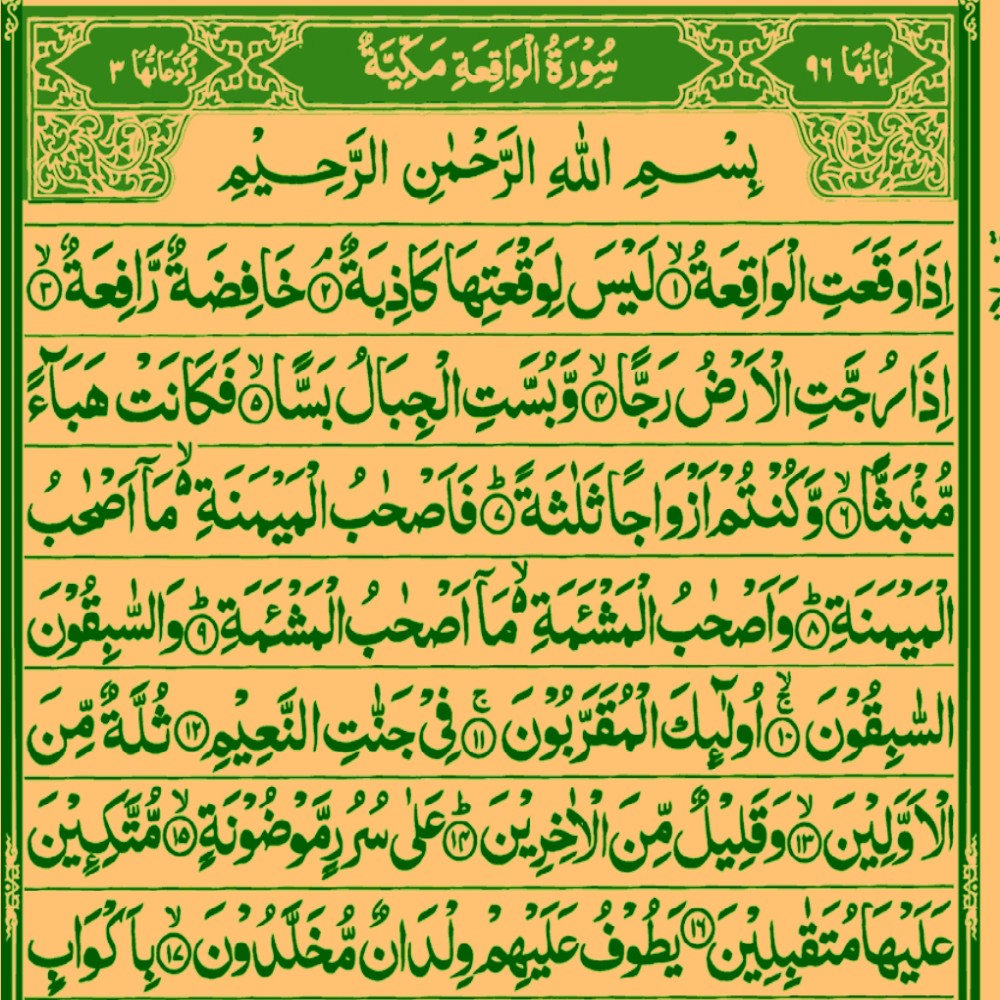 اٰيَاتُهَا ٩٦ سُوْرَةُ الْوَاقِعَةِ مَكِّيَّةٌ رُكُوْعَاتُهَا ٣
بِسْمِ اللّٰهِ الرَّحْمٰنِ الرَّحِيْمِ
اِذَا وَقَعَتِ الْوَاقِعَةُ ۙ﴿۱﴾ لَيْسَ لِوَقْعَتِهَا كَاذِبَةٌ ۘ﴿۲﴾ خَافِضَةٌ رَّافِعَةٌ ۙ﴿۳﴾
اِذَا رُجَّتِ الْاَرْضُ رَجًّا ۙ﴿۴﴾ وَّبُسَّتِ الْجِبَالُ بَسًّا ۙ﴿۵﴾ فَكَانَتْ هَبَآءً
مُّنْۢبَثًّا ۙ﴿۶﴾ وَّكُنْتُمْ اَزْوَاجًا ثَلٰثَةً ؕ﴿۷﴾ فَاَصْحٰبُ الْمَيْمَنَةِ ۬ۙ مَاۤ اَصْحٰبُ
الْمَيْمَنَةِ ؕ﴿۸﴾ وَاَصْحٰبُ الْمَشْئَمَةِ ۬ۙ مَاۤ اَصْحٰبُ الْمَشْئَمَةِ ؕ﴿۹﴾ وَالسّٰبِقُوْنَ
السّٰبِقُوْنَ ۚۙ﴿۱۰﴾ اُولٰٓئِكَ الْمُقَرَّبُوْنَ ۚ﴿۱۱﴾ فِيْ جَنّٰتِ النَّعِيْمِ ﴿۱۲﴾ ثُلَّةٌ مِّنَ
الْاَوَّلِيْنَ ۙ﴿۱۳﴾ وَقَلِيْلٌ مِّنَ الْاٰخِرِيْنَ ؕ﴿۱۴﴾ عَلٰى سُرُرٍ مَّوْضُوْنَةٍ ۙ﴿۱۵﴾ مُّتَّكِـِٕيْنَ
عَلَيْهَا مُتَقٰبِلِيْنَ ﴿۱۶﴾ يَطُوْفُ عَلَيْهِمْ وِلْدَانٌ مُّخَلَّدُوْنَ ۙ﴿۱۷﴾ بِاَكْوَابٍ